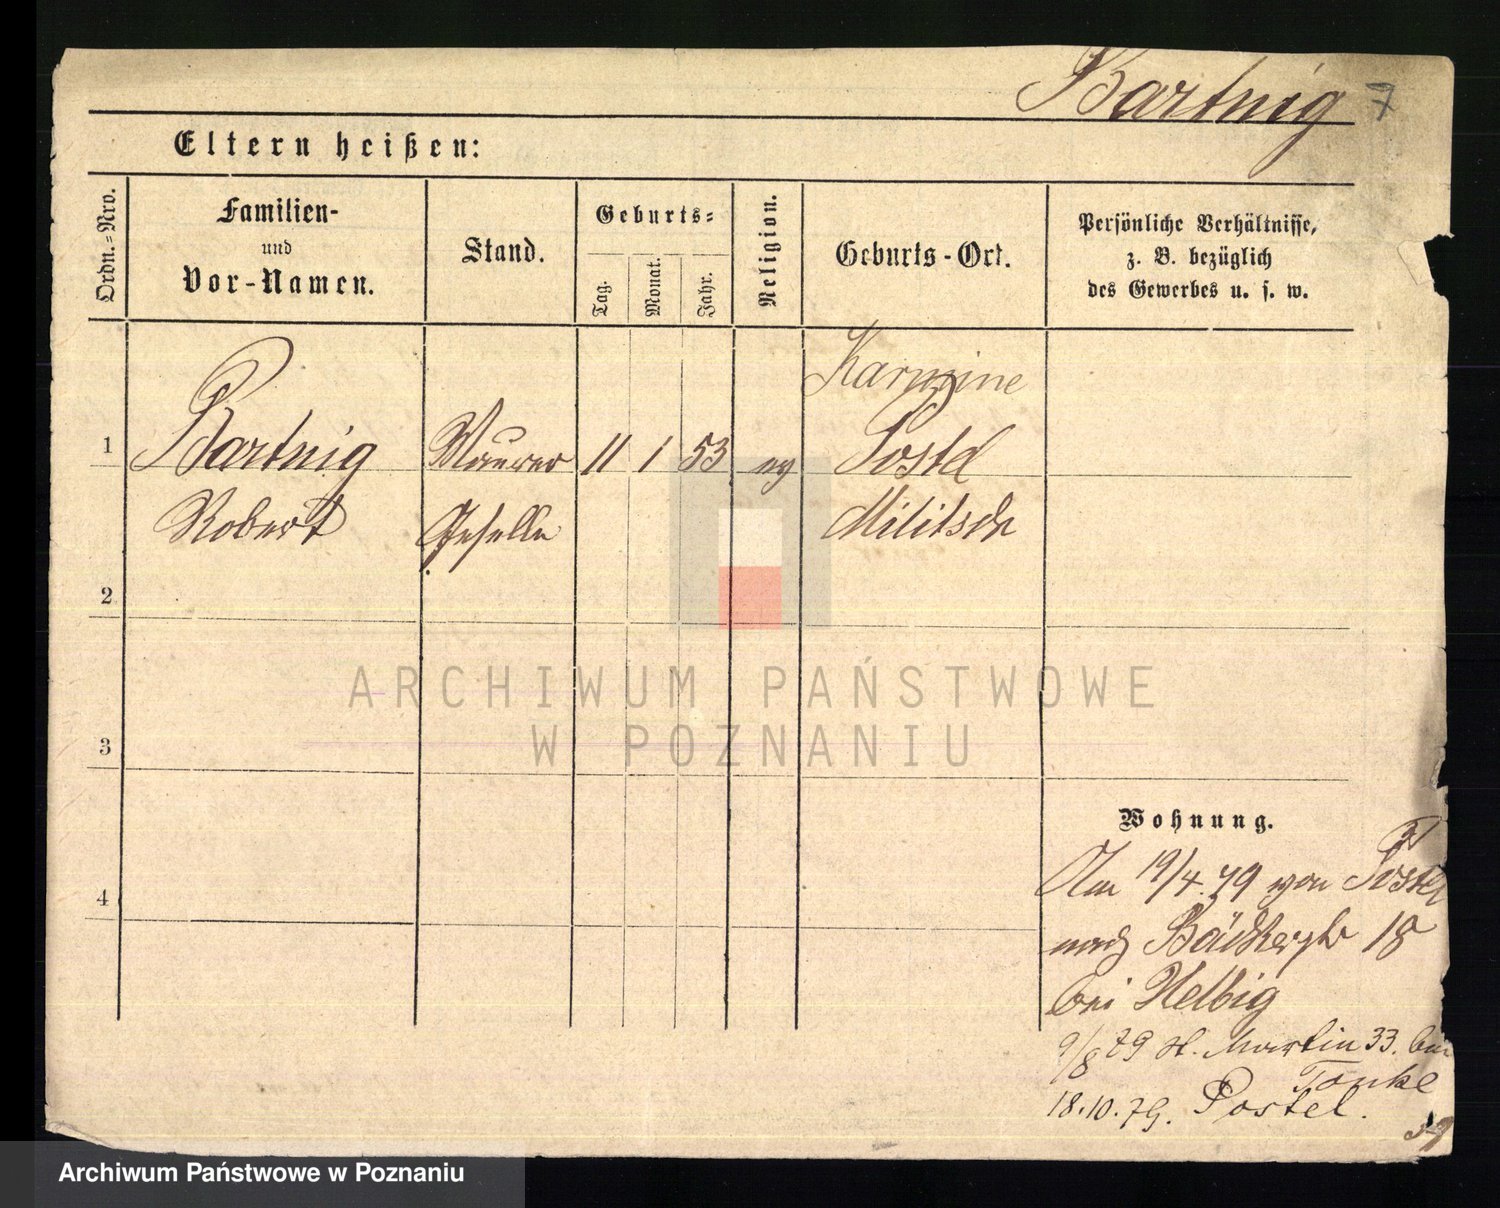 Bartnig 7
Eltern heißen:
Ordn.=Nro.
Familien-
und
Vor-Namen.
Stand.
Geburts=
Tag.
Monat.
Jahr.
Religion.
Geburts-Ort.
Persönliche Verhältnisse,
z. B. bezüglich
des Gewerbes u. s. w.
Karmine
1 Bartnig Maurer 11 1 53 ev Postel
Robert Geselle Militsch
2
3
4
Wohnung.
Am 19/4. 79 von Postel
nach Bäckerstr 18
bei Helbig
9/8 79 St. Martin 33. bei
Tonke
18.10.79. Postel.
ARCHIWUM PAŃSTWOWE
W POZNANIU
Archiwum Państwowe w Poznaniu